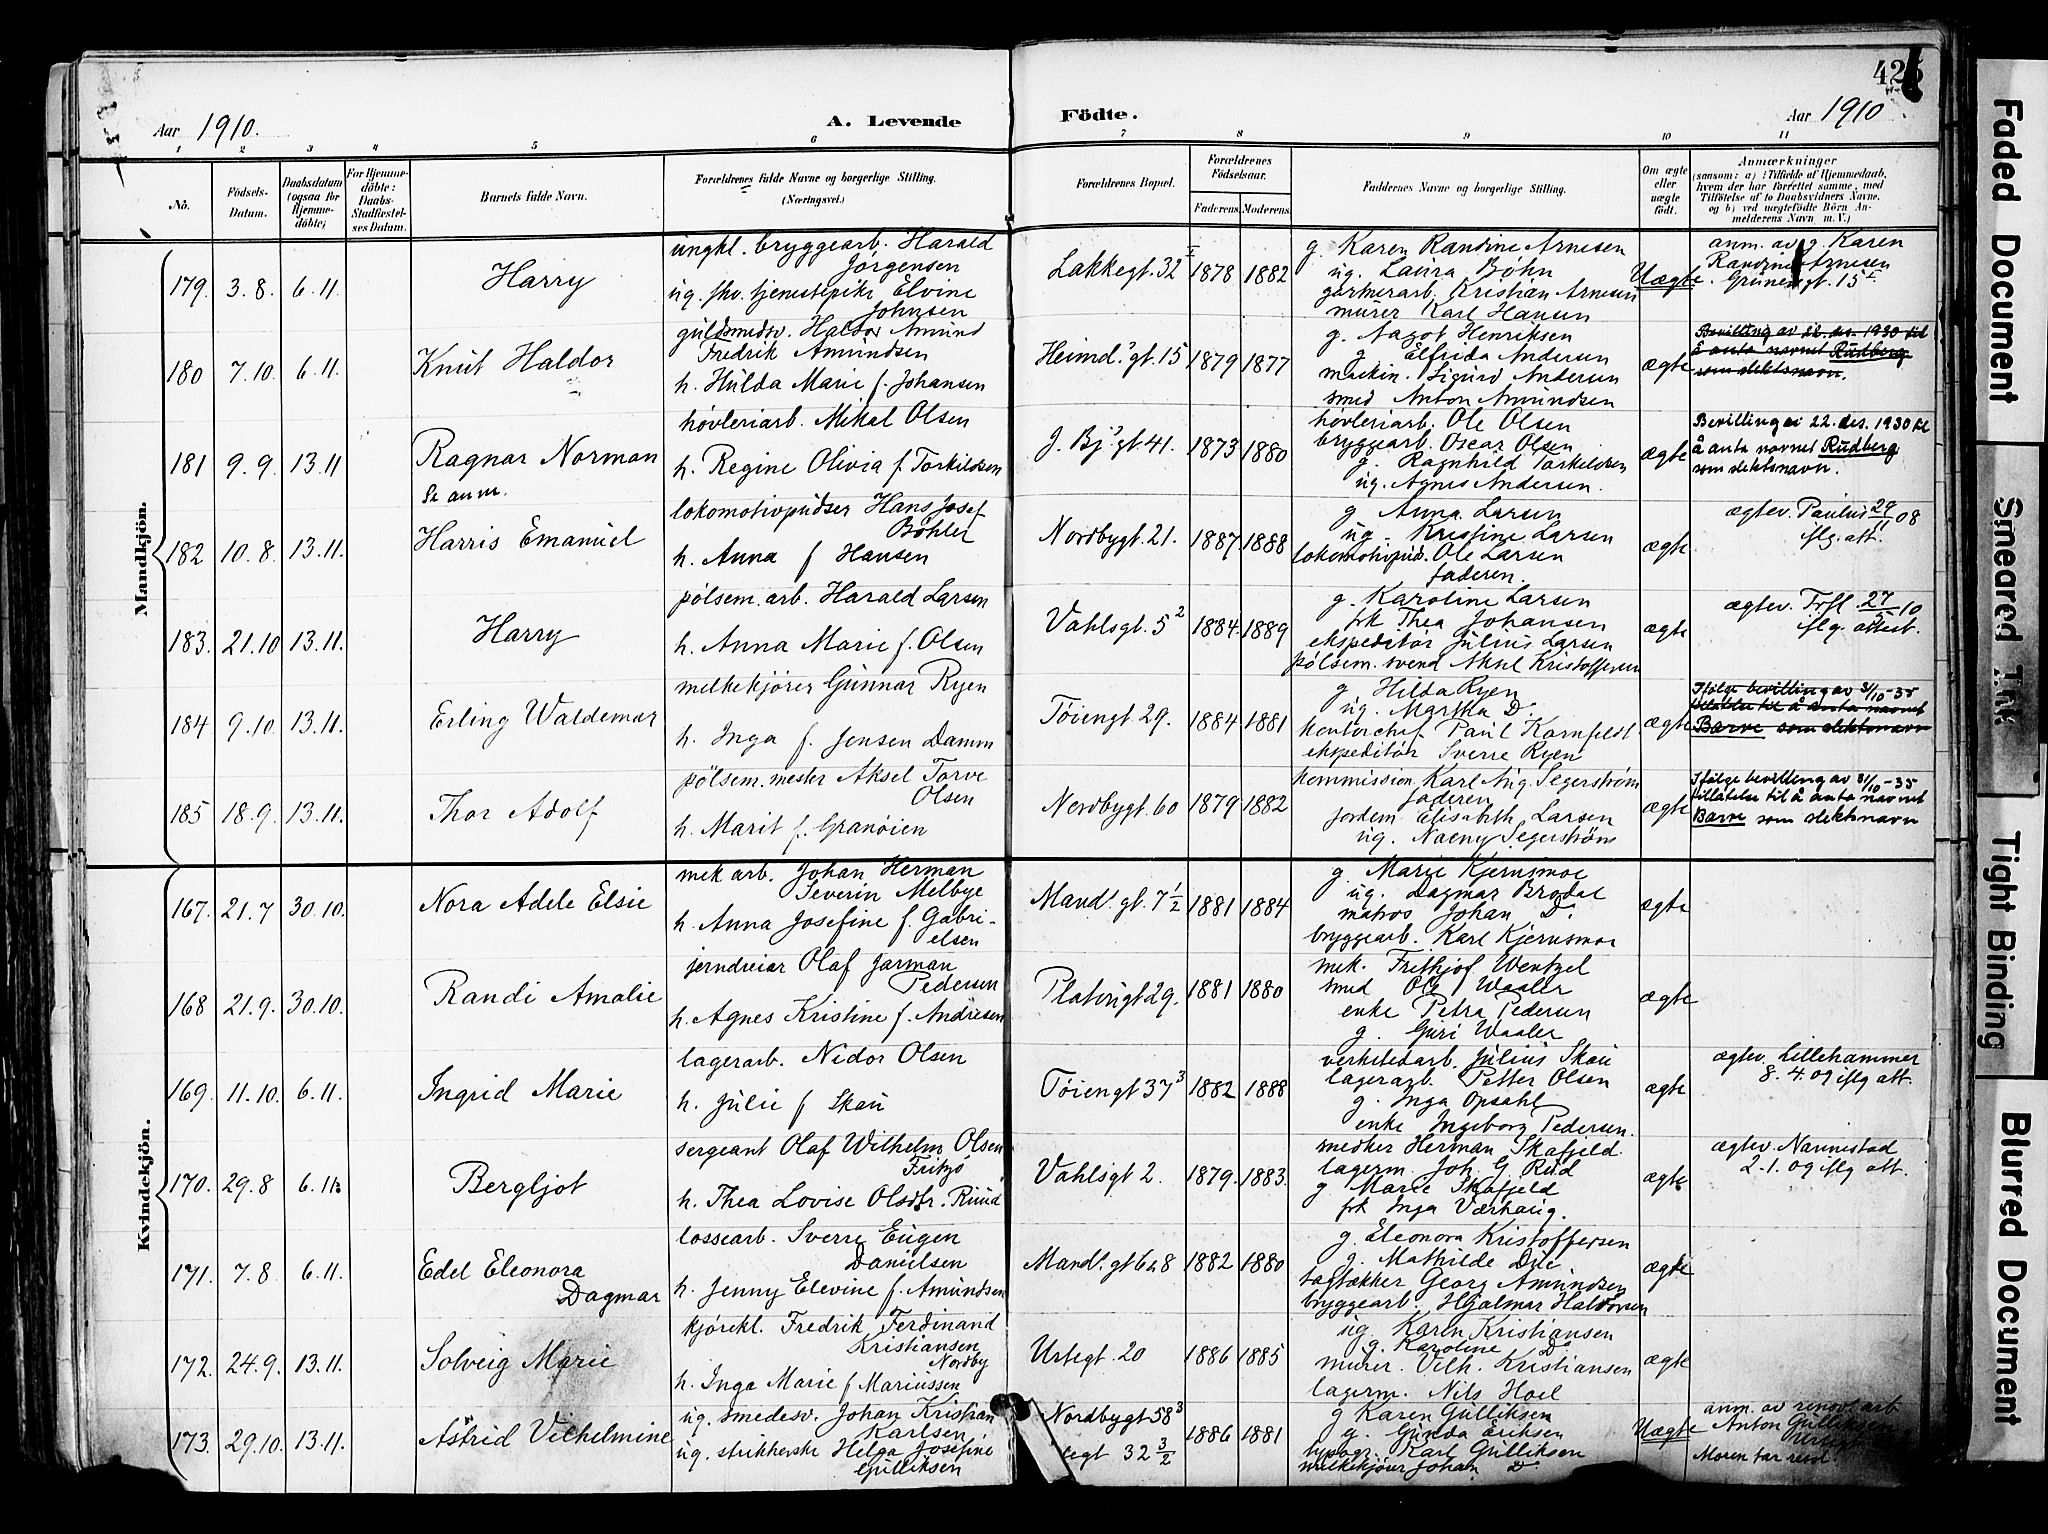 425
Aar 1910.
A. Levende Födte.
Aar 1910
1 2 3 4 5 6 7 8 9 10 11
No.
Födsels-Datum.
Daabsdatum (ogsaa for Hjemmedöbte)
For Hjemmedöbte: Daabs-Stadfæstelses Datum.
Barnets fulde Navn.
Forældrenes fulde Navne og borgerlige Stilling.
(Næringsvei.)
Forældrenes Bopæl.
Forældrenes Födselsaar.
Faderens. Moderens.
Faddernes Navne og borgerlige Stilling.
Om ægte eller uægte födt.
Anmærkninger
(saasom: a) i Tilfælde af Hjemmedaab,
hvem der har forrettet samme, med
Tilföielse af to Daabsvidners Navne,
og b) ved uægtefödte Börn Anmelderens Navn m. V.)
Mandkjön.
179. 3.8. 6.11.
Harry
ungkl. bryggearb. Harald
Jörgensen
ug. fhv. tjenestepike Elvine
Johnsen
Lakkegt. 32 I
1878 1882
g. Karen Randine Arnesen
ug. Laura Böhn
gartnerarb. Kristian Arnesen
murer Karl Hansen
Uægte
anm. av g. Karen
Randine Arnesen
Grünersgt. 15
180 7.10. 6.11.
Knut Haldor
guldsmedsv. Haldor Amund
Fredrik Amundsen
h. Hulda Marie f. Johansen
Heimd. gt. 15
1879 1877
g. Aagot Henriksen
g. Elfrida Andersen
maskin. Sigurd Andersen
smed Anton Amundsen
ægte
Bevilling av 22. des. 1930 til
å anta navnet Rudberg
som slektsnavn.
181 9.9. 13.11
Ragnar Norman
Se anm.
høvleriarb. Mikal Olsen
h. Regine Olivia f. Torkildsen
J. Bj. gt. 41.
1873 1880
høvleriarb. Ole Olsen
bryggearb. Oscar Olsen
g. Ragnhild Torkeldsen
ug. Agnes Andersen.
ægte
Bevilling av 22. des. 1930 til
å anta navnet Rudberg
som slektsnavn.
182 10.8. 13.11.
Harris Emanuel
lokomotivpudser Hans Josef
Böhler
h. Anna f Hansen
Nordbygt. 21.
1887 1888
g Anna Larsen
ug. Kristine Larsen
lokomotivpud. Ole Larsen
faderen.
ægte
ægtev. Paulus 29/11 08
iflg. att.
183. 21.10 13.11.
Harry
pølsem. arb. Harald Larsen
h. Anna Marie f. Olsen
Vahlsgt. 5 2
1884 1889
g. Karoline Larsen
frk Thea Johansen
ekspeditør Julius Larsen
pølsem. svend Aksel Kristoffersen
ægte
ægtev. Trfl. 27/10
iflg. attest.
184 9.10. 13.11.
Erling Waldemar
melkekjører Gunnar Ryen
h. Inga f. Jensen Damm
Töiengt. 29.
1884 1881
g. Hilda Ryen
ug. Martha Do.
kontorchef Paul Kornfeldt
ekspeditør Sverre Ryen
ægte
Ifølge bevilling av 31/10-35
tillatelse til å anta navnet
Barve som slektsnavn
185 18.9. 13.11.
Thor Adolf
pölsem. mester Aksel Torve
Olsen
h. Marit f. Granöien
Nordbygt 60
1879 1882
kommission. Karl Aug. Segerström
faderen
jordem Elisabeth Larsen
ug. Naeny Segerström
ægte
Ifølge bevilling av 31/10-35
tillatelse til å anta navnet
Barve som slektsnavn
Kvindekjön.
167. 21.7 30.10.
Nora Adele Elsie
mek arb. Johan Herman
Severin Melbye
h. Anna Josefine f. Gabri-
elsen
Mand. gt. 7 1/2
1881 1884
g. Marie Kjernsmoe
ug. Dagmar Brodal
matros Johan Do.
bryggearb. Karl Kjernsmoe
ægte
168 21.9. 30.10.
Randi Amalie
jerndreier Olaf Jarman
Pedersen
h. Agnes Kristine f. Andresen
Platousgt 29.
1881 1880
mek. Frithjof Wentzel
smed Ole Waaler
enke Petra Pedersen
g. Guri Waaler
ægte
169. 11.10. 6.11.
Ingrid Marie
lagerarb. Nidor Olsen
h. Julie f Skau
Töiengt 37 3
1882 1888
verkstedarb. Julius Skau
lagerarb. Petter Olsen
g. Inga Opsahl
enke Ingeborg Pedersen.
ægte
ægtev. Lillehammer
8. 4. 09 iflg att.
170. 29.8 6.11.
Bergljot
sergeant Olaf Wilhelm Olsen
Fritzö
h. Thea Lovise Olsdtr. Ruud
Vahlsgt 2.
1879. 1883.
snedker Herman Skafjeld.
lagerm. Joh. G. Rud
g Marie Skafjeld
frk Inga Værhaug.
ægte
ægtev. Nannestad
2-1. 09 iflg att.
171. 7.8 6.11.
Edel Eleonora
Dagmar
lossearb. Sverre Eugen
Danielsen
h. Jenny Elevine f. Amundsen
Mand. gt 6 a 8
1882 1880
g. Eleonora Kristoffersen
g. Mathilde Die
tagtækker Georg Amundsen
bryggearb. Hjalmar Haldorsen
ægte
172. 24.9. 13.11.
Solveig Marie
kjörekl. Fredrik Ferdinand
Kristiansen
Nordby
h. Inga Marie f Mariussen
Urtegt. 20
1886 1885
ug. Karen Kristiansen
g. Karoline Do
murer. Vilh. Kristiansen
lagerm. Nils Hoel
ægte
173. 29.10. 13.11.
Astrid Vilhelmine
ug. smedesv. Johan Kristian
Karlsen
ug. strikkerske Helga Josefine
Gulliksen
Nordbygt 58 3
tegt 32 3/2
1886 1881
g Karen Gulliksen
g. Gunda Eriksen
typogr. Karl Gulliksen
melkekjörer Johan Do
Uægte
anm. av renov. arb
Anton Gulliksen
Moren har resol.
Faded Document
Smeared Ink
Tight Binding
Blurred Document